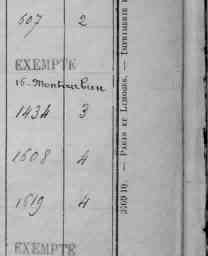 607 2
EXEMPTE
16 - Montauban
1434 3
1608 4
1619 4
EXEMPTE
PARIS ET LIMOGES. — IMPRIMERIE